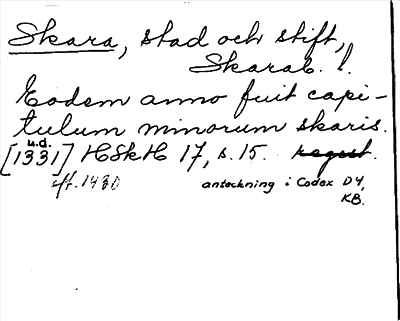 Skara, stad och stift,
Skarab. l.
Eodem anno fuit capi-
tulum minorum skaris.
u.d.
[1331] HSkH 17, s. 15. regest.
eft. 1430 anteckning i Codex D4,
KB.